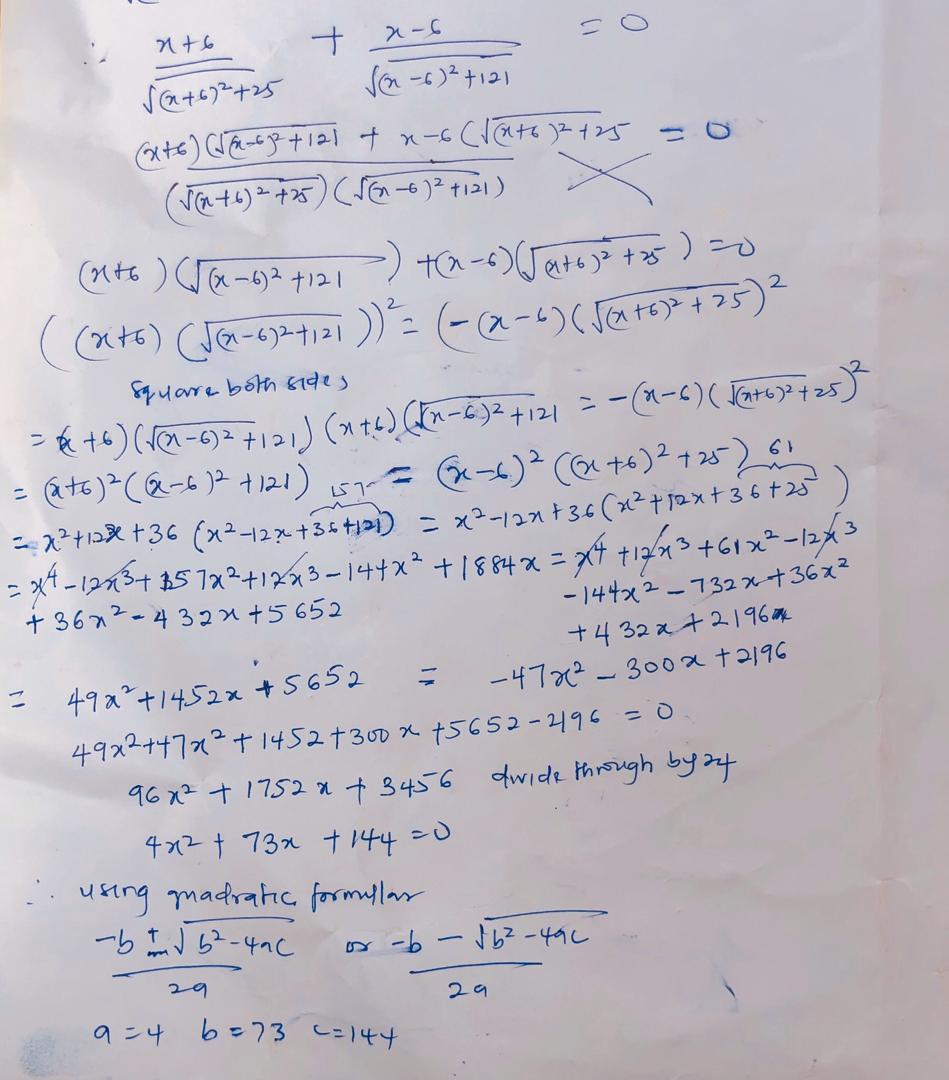 ∴ x+6/√(x+6)²+25 + x-6/√(x-6)²+121 = 0
(x+6)(√(x-6)²+121 + x-6(√(x+6)²+25 = 0
(√(x+6)²+25)(√(x-6)²+121)
(x+6)(√(x-6)²+121) +(x-6)(√(x+6)²+25) = 0
((x+6)(√(x-6)²+121))² = (-(x-6)(√(x+6)²+25)²
Square both sides
= (x+6)(√(x-6)²+121)(x+6)(√(x-6)²+121 = -(x-6)(√(x+6)²+25)²
= (x+6)²((x-6)²+121) = (x-6)²((x+6)²+25)
157 61
= x²+12x+36(x²-12x+36+121) = x²-12x+36(x²+12x+36+25)
= x⁴-12x³+157x²+12x³-144x²+1884x = x⁴+12x³+61x²-12x³
+36x²-432x+5652 -144x²-732x+36x²
+432x+2196
= 49x²+1452x+5652 = -47x²-300x+2196
49x²+47x²+1452+300x+5652-2196 = 0
96x²+1752x+3456 divide through by 24
4x²+73x+144=0
∴ using quadratic formular
-b±√b²-4ac/2a or -b-√b²-4ac/2a
a=4 b=73 c=144